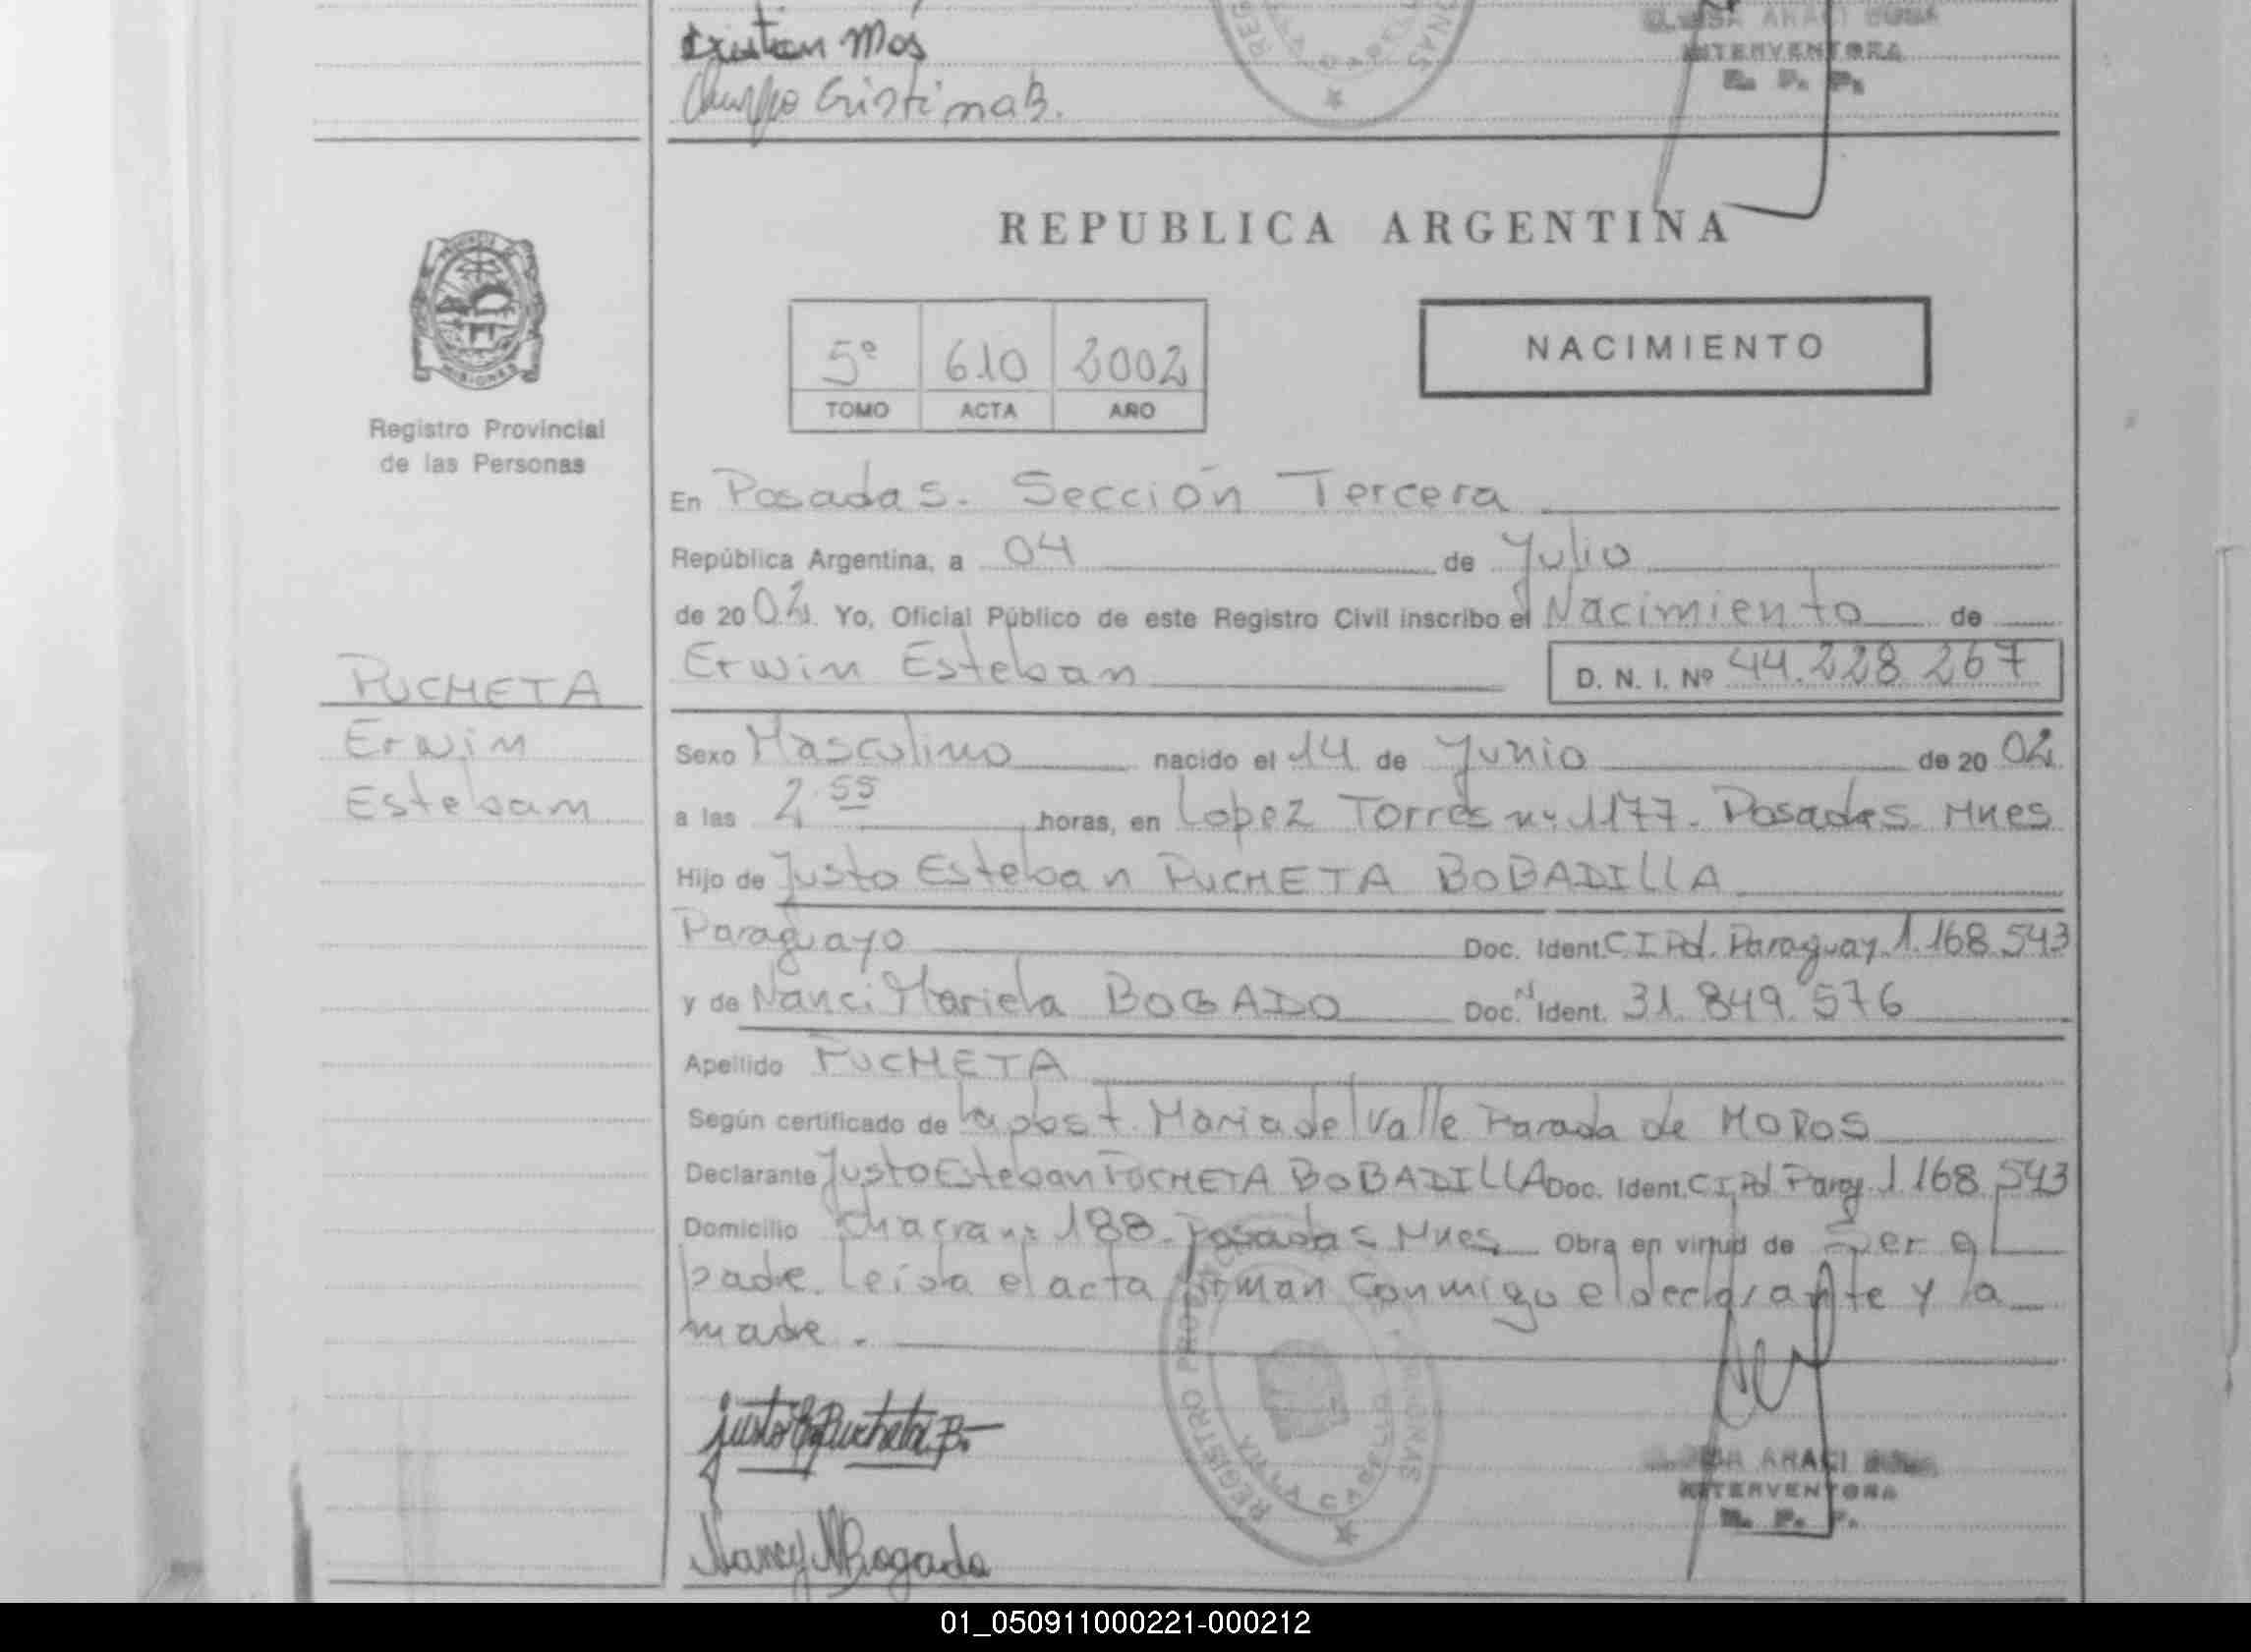 Cristian Mos
Cristina B.
INTERVENTORA
R. P. P.
REPUBLICA ARGENTINA
MISIONES
Registro Provincial
de las Personas
5º 610 2002
TOMO ACTA AÑO
NACIMIENTO
En Posadas. Sección Tercera
República Argentina, a 04 de Julio
de 2002. Yo, Oficial Público de este Registro Civil inscribo el Nacimiento de
Erwin Esteban D. N. I. Nº 44.228.267
PUCHETA
Erwin
Esteban
Sexo Masculino nacido el 14 de Junio de 2002
a las 2.55 horas, en Lopez Torres nº 1177. Posadas Mnes
Hijo de Justo Esteban PUCHETA BOBADILLA
Paraguayo Doc. Ident. C I Pol. Paraguay 1.168.543
y de Nanci Mariela BOGADO Doc. N Ident. 31.849.576
Apellido PUCHETA
Según certificado de la obst. Maria del Valle Parada de
Declarante Justo Esteban PUCHETA BOBADILLA Doc. Ident. C I Pol Parag. 1.168.543
Domicilio Chacra nº 188. Posadas Mnes Obra en virtud de Ser el
padre. Leída el acta firman conmigo el declarante y la
madre.
justo E. Pucheta B.
Nancy M Bogado
REGISTRO PROVINCIAL DE LAS PERSONAS
ARACI
INTERVENTORA
R. P. P.
01_050911000221-000212